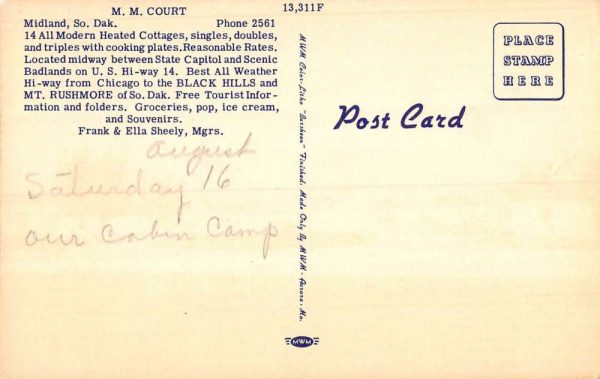 M. M. COURT
Midland, So. Dak. Phone 2561
14 All Modern Heated Cottages, singles, doubles,
and triples with cooking plates. Reasonable Rates.
Located midway between State Capitol and Scenic
Badlands on U. S. Hi-way 14. Best All Weather
Hi-way from Chicago to the BLACK HILLS and
MT. RUSHMORE of So. Dak. Free Tourist Infor-
mation and folders. Groceries, pop, ice cream,
and Souvenirs.
Frank & Ella Sheely, Mgrs.
august
Saturday 16
our Cabin Camp
13,311F
MWM Color-Litho "Larcheen" Finished. Made Only By MWM-Aurora, Mo.
MWM
Post Card
PLACE
STAMP
HERE